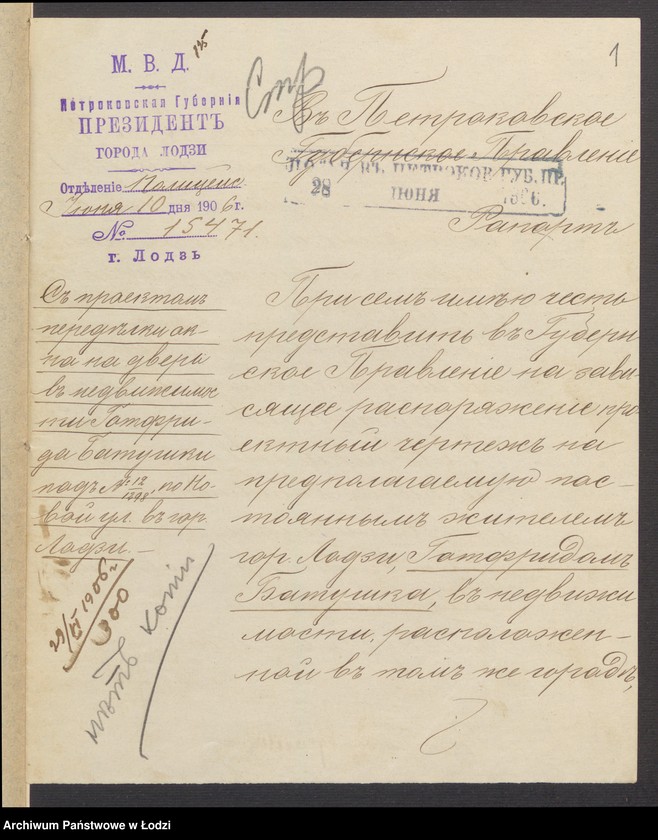 М. В. Д.
135
1
Петроковская Губернія
ПРЕЗИДЕНТЪ
ГОРОДА ЛОДЗИ
Отдѣленіе Полицейс.
Іюня 10 дня 1906 г.
№ 15471.
г. Лодзь
Стр
Въ Петроковское
Губернское Правленіе
ПЕТРОКОВ. ГУБ. ПР.
28 ІЮНЯ 1906.
Рапортъ
Съ проектомъ
передѣлки ок-
на на дверь
въ недвижимос
ти Готфри-
да Батушки
подъ № 12/1298 по Но-
вой ул. въ гор.
Лодзи.—
29/VI 1906 г.
300
нѣтъ копіи
При семъ имѣю честь
представить въ Губерн
ское Правленіе на зави-
сящее распоряженіе про-
ектный чертежъ на
предполагаемую пос-
тояннымъ жителемъ
гор. Лодзи, Готфридомъ
Батушка, въ недвижи
мости, расположен-
ной въ томъ же городѣ,
Archiwum Państwowe w Łodzi